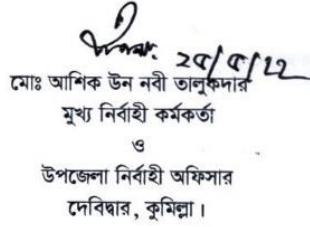 ২৫/৫/২২
মোঃ আশিক উন নবী তালুকদার
মুখ্য নির্বাহী কর্মকর্তা
ও
উপজেলা নির্বাহী অফিসার
দেবিদ্বার, কুমিল্লা।